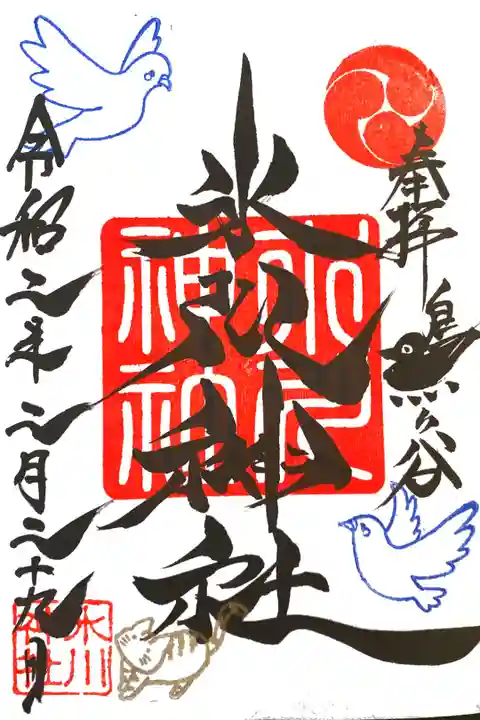 奉拝
鳩ヶ谷
氷川神社
令和二年二月二十九日
氷川
神社